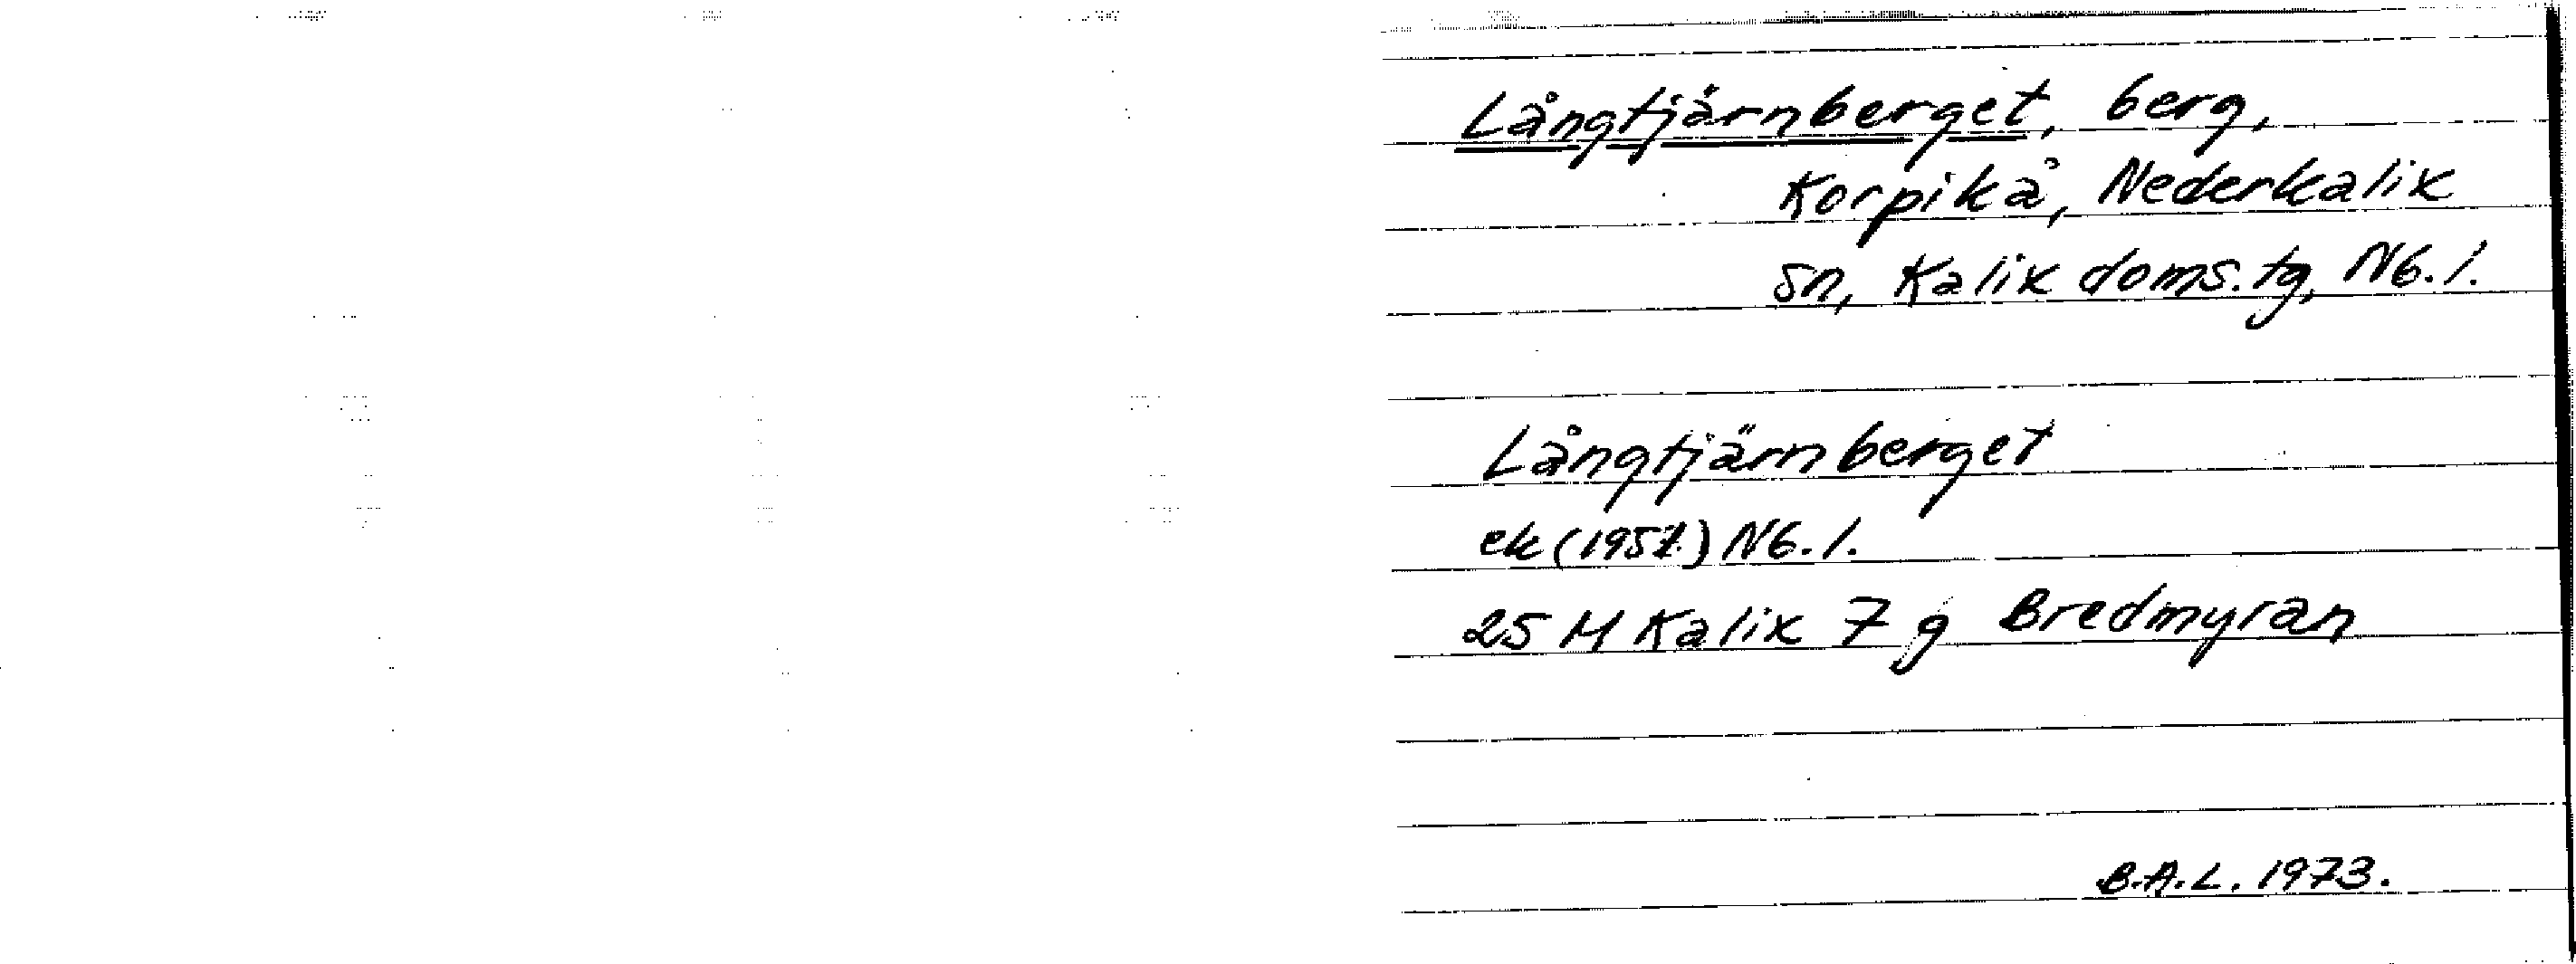 Långtjärnberget, berg,
Korpikå, Nederkalix
sn, Kalix doms.tg, Nb.l.
Långtjärnberget
ek (1957) Nb.l.
25 M Kalix 7 g Bredmyran
B.A.L. 1973.